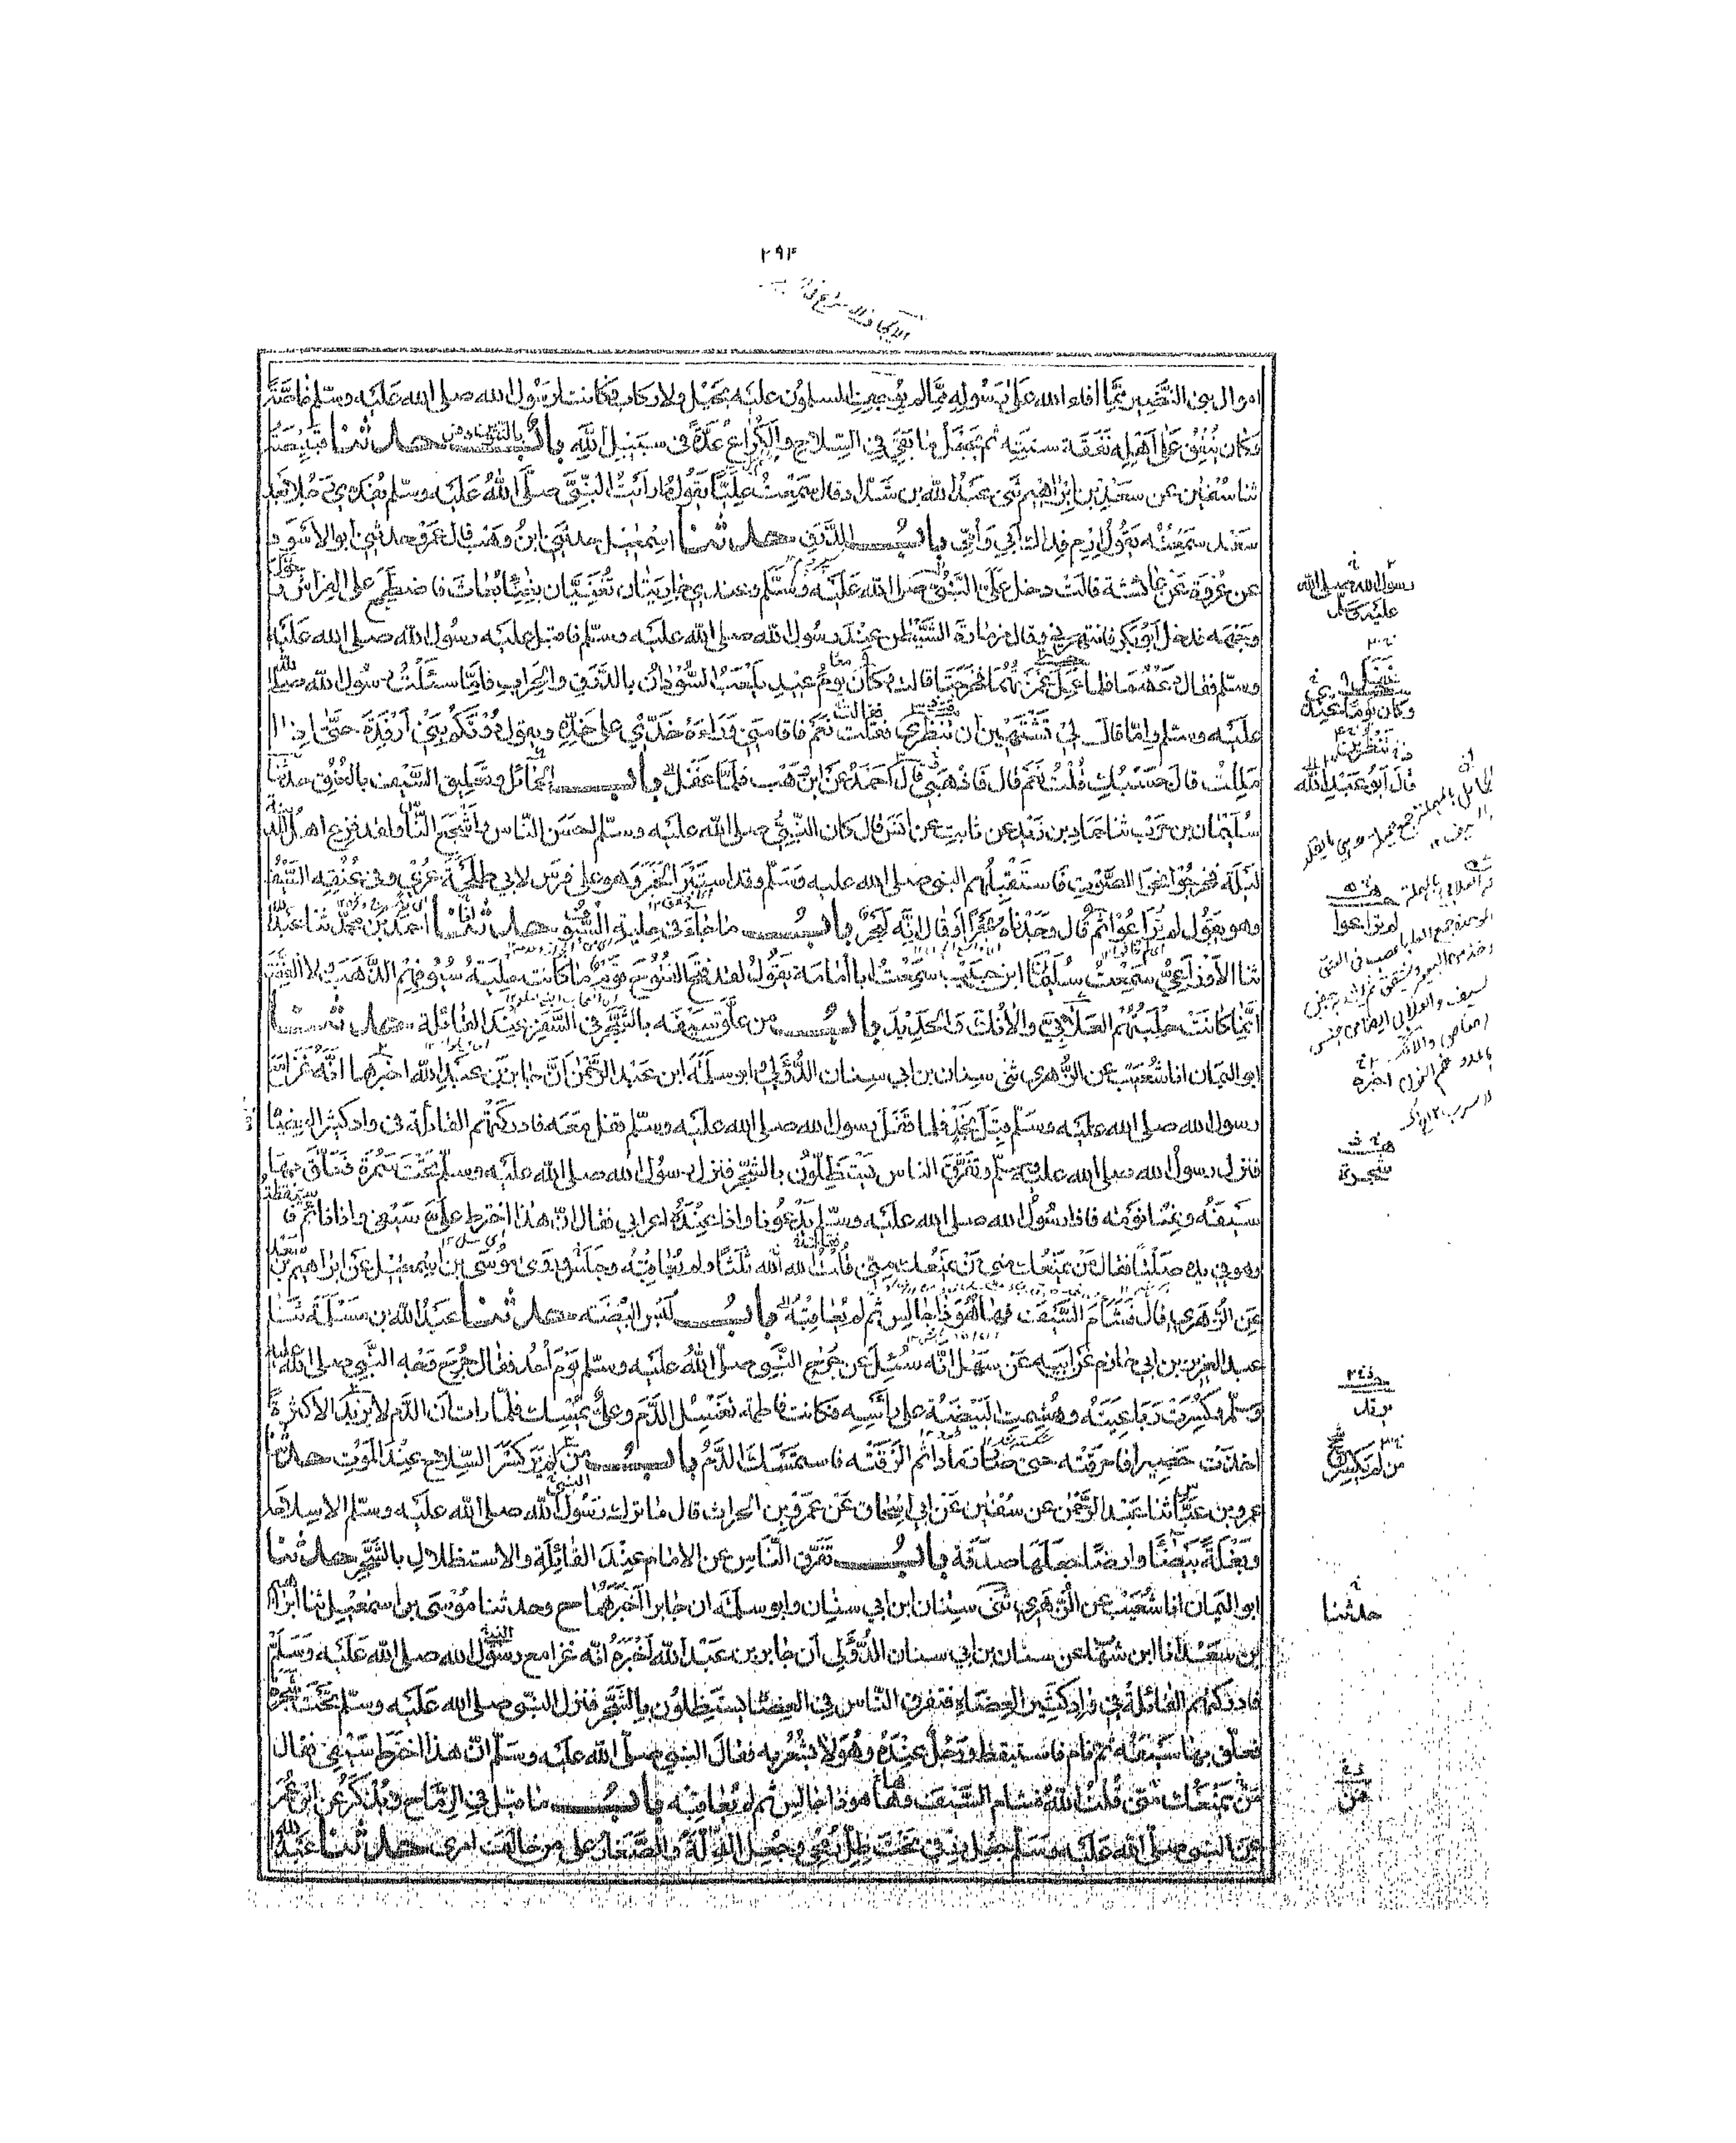 ٢٩٤
اموال بني النضير مما أفاء الله على رسوله مما لم يوجف المسلمون عليه بخيل ولا ركاب فكانت لرسول الله صلى الله عليه وسلم خاصة
وكان ينفق على أهله نفقة سنته ثم يجعل ما بقي في السلاح والكراع عدة في سبيل الله باب حدثنا قبيصة
ثنا سفيان عن سعد بن ابراهيم ثني عبد الله بن شداد قال سمعت عليا يقول ما رأيت النبي صلى الله عليه وسلم يفدي رجلا بعد
سعد سمعته يقول ارم فداك أبي وأمي باب الدرق حدثنا اسمعيل حدثني ابن وهب قال عمرو حدثني ابوالاسود
عن عروة عن عائشة قالت دخل علي النبي صلى الله عليه وسلم وعندي جاريتان تغنيان بغناء بعاث فاضطجع على الفراش وحول
وجهه فدخل أبوبكر فانتهرني وقال مزمارة الشيطن عند رسول الله صلى الله عليه وسلم فاقبل عليه رسول الله صلى الله عليه
وسلم فقال دعهما فلما غفل غمزتهما فخرجتا قالت وكان يوم عيد يلعب السودان بالدرق والحراب فاما سئلت رسول الله صلى الله
عليه وسلم واما قال لي تشتهين ان تنظري فقلت نعم فاقامني وراءه خدي على خده ويقول دونكم بني أرفدة حتى اذا
مللت قال حسبك قلت نعم قال فاذهبي قال احمد عن ابن وهب فلما غفل باب الحمائل وتعليق السيف بالعنق حدثنا
سليمان بن حرب ثنا حماد بن زيد عن ثابت عن انس قال كان النبي صلى الله عليه وسلم احسن الناس واشجع الناس ولقد فزع اهل المدينة
ليلة فخرجوا نحو الصوت فاستقبلهم النبي صلى الله عليه وسلم وقد استبرأ الخبر وهو على فرس لابي طلحة عري وفي عنقه السيف
وهو يقول لم تراعوا ثم قال وجدناه بحرا أو قال انه لبحر باب ما جاء في حلية السيوف حدثنا احمد بن محمد ثنا عبد الله
ثنا الأوزاعي سمعت سليمن ابن حبيب سمعت أبا أمامة يقول لقد فتح الفتوح قوم ما كانت حلية سيوفهم الذهب ولا الفضة
انما كانت حليتهم العلابي والآنك والحديد باب من علق سيفه بالشجر في السفر عند القائلة حدثنا
ابو اليمان انا شعيب عن الزهري ثني سنان بن ابي سنان الدؤلي وابو سلمة ابن عبد الرحمن أن جابر بن عبد الله اخبرهما انه غزا مع
رسول الله صلى الله عليه وسلم قبل نجد فلما قفل رسول الله صلى الله عليه وسلم قفل معه فادركتهم القائلة في واد كثير العضاه
فنزل رسول الله صلى الله عليه وسلم وتفرق الناس يستظلون بالشجر فنزل رسول الله صلى الله عليه وسلم تحت سمرة فعلق بها
سيفه ونمنا نومة فاذا رسول الله صلى الله عليه وسلم يدعونا واذا عنده اعرابي فقال ان هذا اخترط علي سيفي وانا نائم فاستيقظت
وهو في يده صلتا فقال من يمنعك مني من يمنعك مني قلت الله الله ثلثا ولم يعاقبه وجلس وروى موسى بن اسمعيل عن ابراهيم بن سعد
عن الزهري قال فشام السيف فها هو ذا جالس ثم لم يعاقبه باب لبس البيضة حدثنا عبد الله بن مسلمة ثنا
عبد العزيز بن ابي حازم عن ابيه عن سهل انه سئل عن جرح النبي صلى الله عليه وسلم يوم أحد فقال جرح وجه النبي صلى الله عليه
وسلم وكسرت رباعيته وهشمت البيضة على رأسه فكانت فاطمة تغسل الدم وعلي يمسك فلما رات ان الدم لا يزيد الا كثرة
اخذت حصيرا فاحرقته حتى صار رمادا ثم الزقته فاستمسك الدم باب من لم ير كسر السلاح عند الموت حدثنا
عمرو بن عباس ثنا عبد الرحمن عن سفين عن ابي اسحاق عن عمرو بن الحارث قال ما ترك رسول الله صلى الله عليه وسلم الا سلاحه
وبغلة بيضاء وارضا جعلها صدقة باب تفرق الناس عن الامام عند القائلة والاستظلال بالشجر حدثنا
ابو اليمان انا شعيب عن الزهري ثني سنان ابن ابي سنان وابو سلمة ان جابرا أخبرهما ح وحدثنا موسى بن اسمعيل ثنا ابراهيم
بن سعد انا ابن شهاب عن سنان بن ابي سنان الدؤلي أن جابر بن عبد الله أخبره انه غزا مع رسول الله صلى الله عليه وسلم
فادركتهم القائلة في واد كثير العضاه فتفرق الناس في العضاه يستظلون بالشجر فنزل النبي صلى الله عليه وسلم تحت شجرة
فعلق بها سيفه ثم نام فاستيقظ ورجل عنده وهو لا يشعر به فقال النبي صلى الله عليه وسلم ان هذا اخترط سيفي فقال
من يمنعك مني قلت الله فشام السيف فها هو ذا جالس ثم لم يعاقبه باب ما قيل في الرماح ويذكر عن ابن عمر
عن النبي صلى الله عليه وسلم جعل رزقي تحت ظل رمحي وجعل الذلة والصغار على من خالف امري حدثنا عبد الله
رسول الله صلى الله
عليه وسلم
وكان يوما عندي
تنظرين
قال أبو عبد الله
لم تراعوا
شجرة
من لم يكسر
حدثنا
من